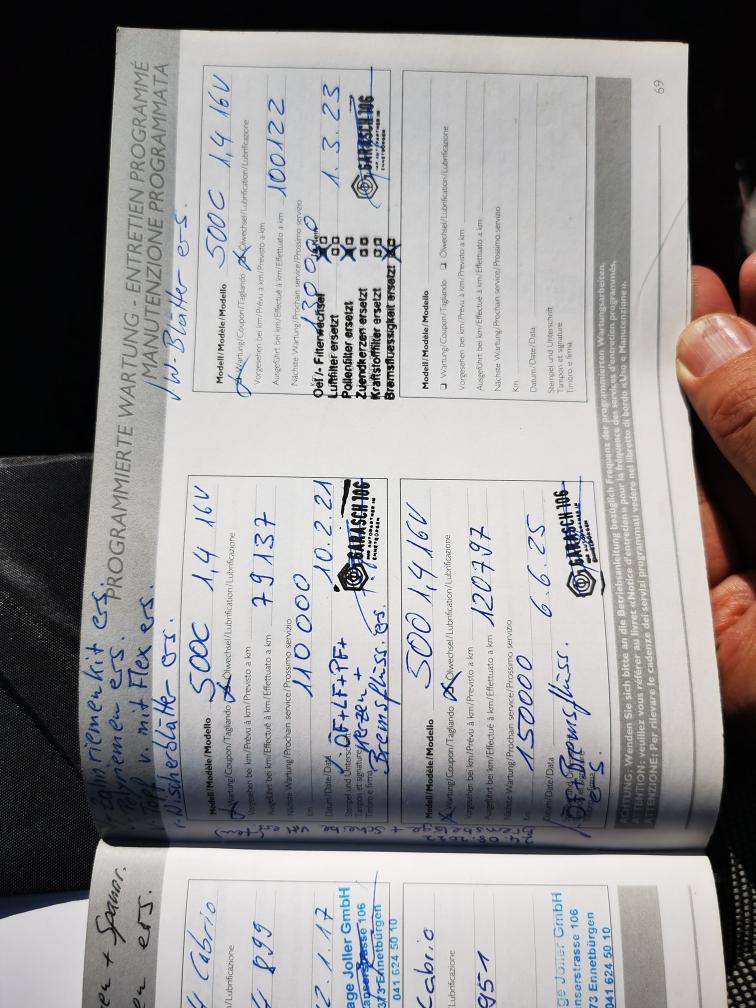 PROGRAMMIERTE WARTUNG - ENTRETIEN PROGRAMMÉ
MANUTENZIONE PROGRAMMATA
Zahnriemenkit ers.
Polyriemen ers.
v. mit Flex ers.
Wischerblätte ers.
Modell/Modèle/Modello 500C 1,4 16V
Wartung/Coupon/Tagliando Ölwechsel/Lubrification/Lubrificazione
Vorgesehen bei km/Prévu à km/Previsto a km
Ausgeführt bei km/Effectué à km/Effettuato a km 79137
Nächste Wartung/Prochain service/Prossimo servizio
km 110000
Datum/Date/Data 10.2.21
Stempel und Unterschrift
Tampon et signature
Timbro e firma
ÖF+LF+PF+
Kerzen +
Bremsflüss. ers.
GARASCH 106
ENNETBÜRGEN
VW-Blätter ers.
Modell/Modèle/Modello 500C 1,4 16V
Wartung/Coupon/Tagliando Ölwechsel/Lubrification/Lubrificazione
Vorgesehen bei km/Prévu à km/Previsto a km
Ausgeführt bei km/Effectué à km/Effettuato a km 100122
Nächste Wartung/Prochain service/Prossimo servizio
Oel /- Filterwechsel
Luftfilter ersetzt 1.3.23
Pollenfilter ersetzt
Zuendkerzen ersetzt
Kraftstofffilter ersetzt
Bremsfluessigkeit ersetzt
GARASCH 106
ENNETBÜRGEN
Modell/Modèle/Modello 500 1,4 16V
Wartung/Coupon/Tagliando Ölwechsel/Lubrification/Lubrificazione
Vorgesehen bei km/Prévu à km/Previsto a km
Ausgeführt bei km/Effectué à km/Effettuato a km 120797
Nächste Wartung/Prochain service/Prossimo servizio
km 150000
Datum/Date/Data 6.6.25
Bremsflüss.
ers.
GARASCH 106
ENNETBÜRGEN
Modell/Modèle/Modello
Wartung/Coupon/Tagliando Ölwechsel/Lubrification/Lubrificazione
Vorgesehen bei km/Prévu à km/Previsto a km
Ausgeführt bei km/Effectué à km/Effettuato a km
Nächste Wartung/Prochain service/Prossimo servizio
Km
Datum/Date/Data
Stempel und Unterschrift
Tampon et signature
Timbro e firma
ACHTUNG: Wenden Sie sich bitte an die Betriebsanleitung bezüglich Frequenz der programmierten Wartungsarbeiten.
ATTENTION: veuillez vous référer au livret «Notice d'entretien» pour la fréquence des services d'entretien programmés.
ATTENZIONE: Per rilevare le cadenze dei servizi programmati vedere nel libretto di bordo «Uso e Manutenzione».
69
en + Spannr.
en ers.
Cabrio
/Lubrificazione
899
2.1.17
age Joller GmbH
anserstrasse 106
3/3 Ennetbürgen
041 624 50 10
Cabrio
Lubrificazione
951
ge Joller GmbH
nserstrasse 106
Ennetbürgen
041 624 50 10